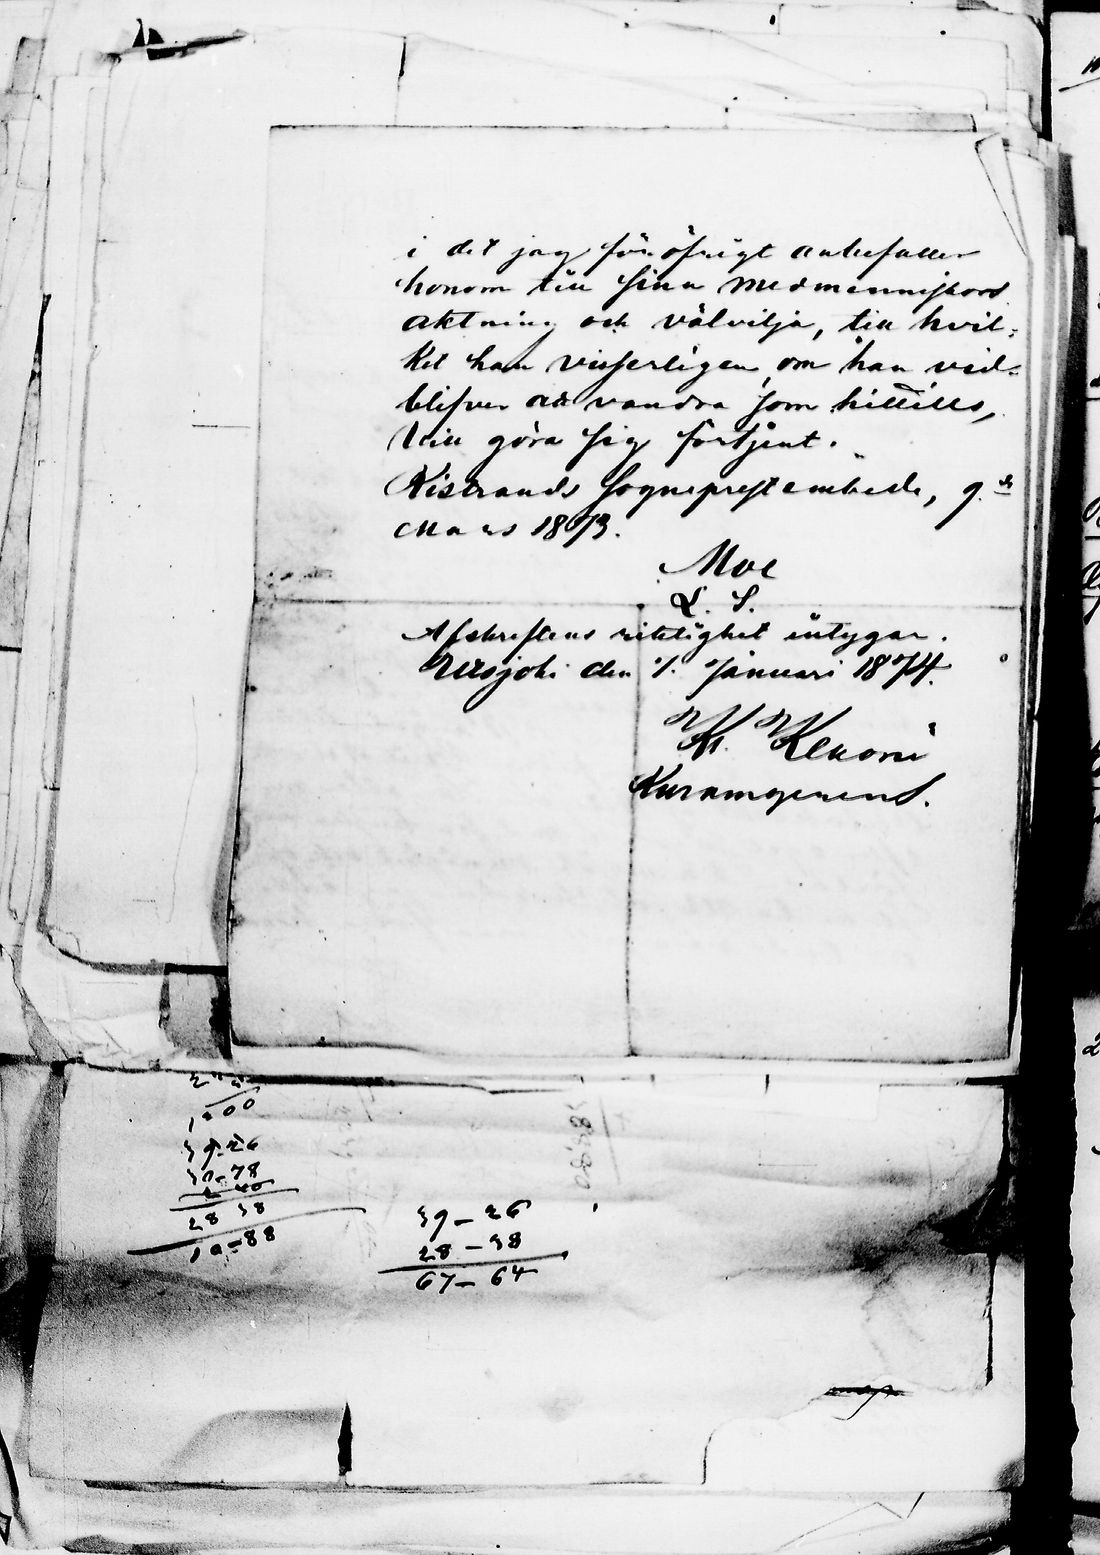 i det jag för öfrigt anbefaller
honom till sina medmenniskors
aktning och välvilja, till hvil-
ket han visserligen, om han vid-
blifver att vandra som hittills,
vill göra sig förtjent.
Kistrands Sogneprestembede, 9.de
Mars 1873.
Moe
L. S.
Afskriftens riktighet intygar.
Utsjoki den 7. Januari 1874.
Kl. 
39-26
28-38
67-64
28 38
10-88